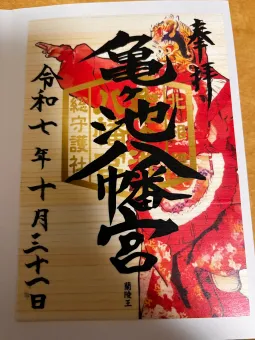 奉拝
亀ヶ池八幡宮
蘭陵王
総守護社
令和七年十月三十一日